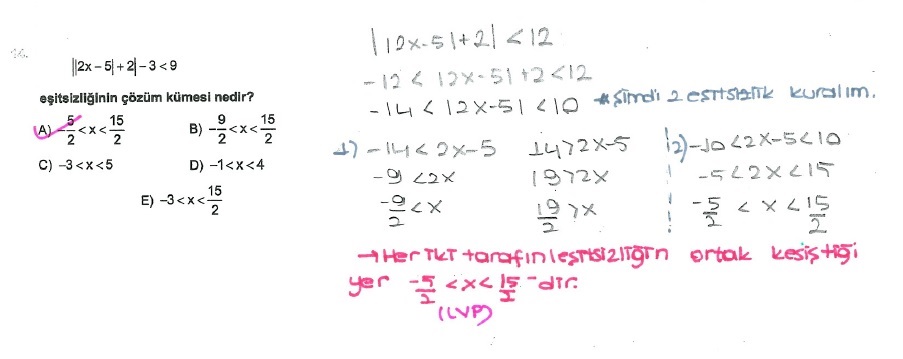 ||2x – 5| + 2| – 3 < 9
eşitsizliğinin çözüm kümesi nedir?
A) –5/2 < x < 15/2 B) –9/2 < x < 15/2
C) –3 < x < 5 D) –1 < x < 4
E) –3 < x < 15/2
||2x-5|+2| < 12
-12 < |2x-5|+2 < 12
-14 < |2x-5| < 10 * Şimdi 2 eşitsizlik kuralım.
1) -14 < 2x-5 14 > 2x-5 2) -10 < 2x-5 < 10
-9 < 2x 19 > 2x -5 < 2x < 15
-9/2 < x 19/2 > x -5/2 < x < 15/2
→ Her iki tarafın eşitsizliğin ortak kesiştiği
yer -5/2 < x < 15/2 -dir.
(LVP)